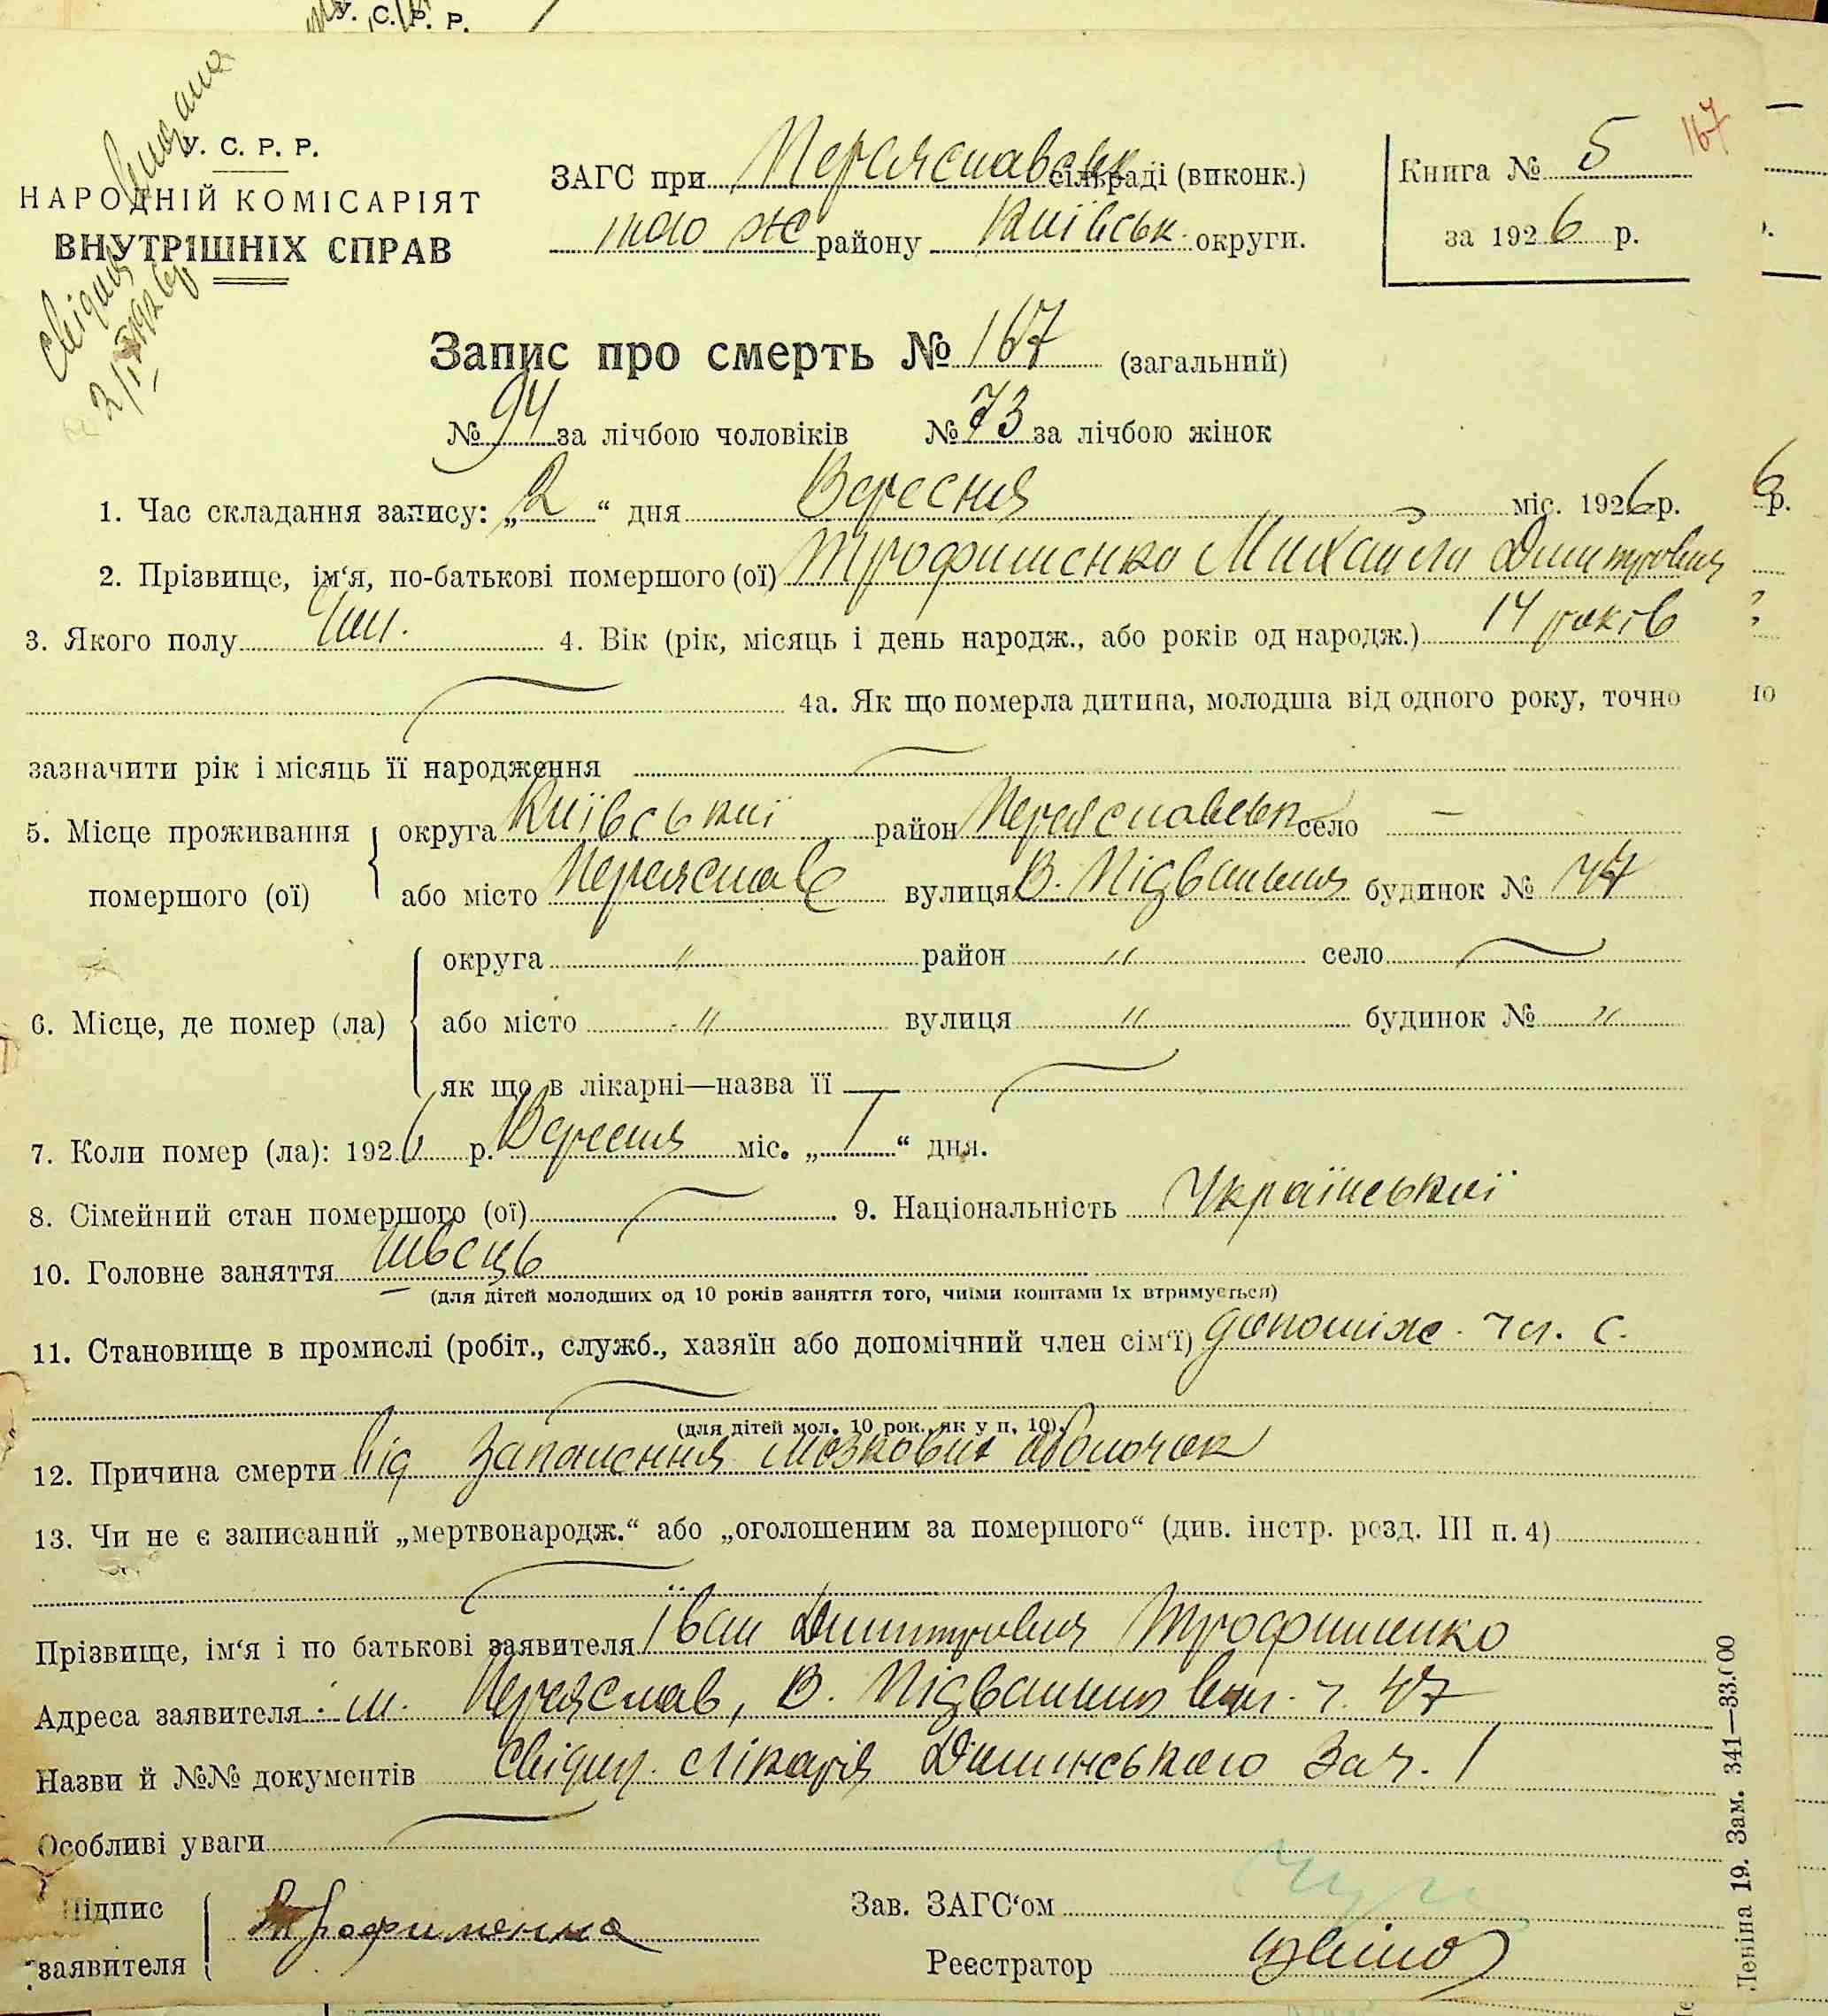 У. С. Р. Р.
167
У. С. Р. Р.
НАРОДНІЙ КОМІСАРІЯТ
ВНУТРІШНІХ СПРАВ
видана
2/ІХ 1926р
ЗАГС при Переяславськ сільраді (виконк.)
того ж району Київськ. округи.
Книга № 5
за 1926 р.
Запис про смерть № 167 (загальний)
№ 94 за лічбою чоловіків № 73 за лічбою жінок
1. Час складання запису: „2“ дня Вересня міс. 1926 р.
2. Прізвище, ім‘я, по-батькові помершого (ої) Трофименко Михайло Дмитрович
3. Якого полу чол. 4. Вік (рік, місяць і день народж., або років од народж.) 14 років
4а. Як що померла дитина, молодша від одного року, точно
зазначити рік і місяць її народження
5. Місце проживання помершого (ої) округа Київський район Переяславськ село —
або місто Переяслав вулиця В. Підвальна будинок № 47
6. Місце, де помер (ла) округа " район " село
або місто " вулиця " будинок № "
як що в лікарні—назва її —
7. Коли помер (ла): 1926 р. Вересня міс. „1“ дня.
8. Сімейний стан помершого (ої) 9. Національність Український
10. Головне заняття швець
(для дітей молодших од 10 років заняття того, чиїми коштами їх втримується)
11. Становище в промислі (робіт., служб., хазяїн або допомічний член сім‘ї) допоміж. чл. с.
(для дітей мол. 10 рок. як у п. 10).
12. Причина смерти від запалення мозкових оболочок
13. Чи не є записаний „мертвонародж.“ або „оголошеним за помершого“ (див. інстр. розд. III п. 4)
Прізвище, ім‘я і по батькові заявителя Іван Дмитрович Трофименко
Адреса заявителя: м. Переяслав, В. Підвальна вул. ч. 47
Назви й №№ документів свідоц. лікаря за ч. 1
Особливі уваги
Підпис заявителя Трофименко
Зав. ЗАГС‘ом
Реєстратор
Леніна 19. Зам. 341—33.000